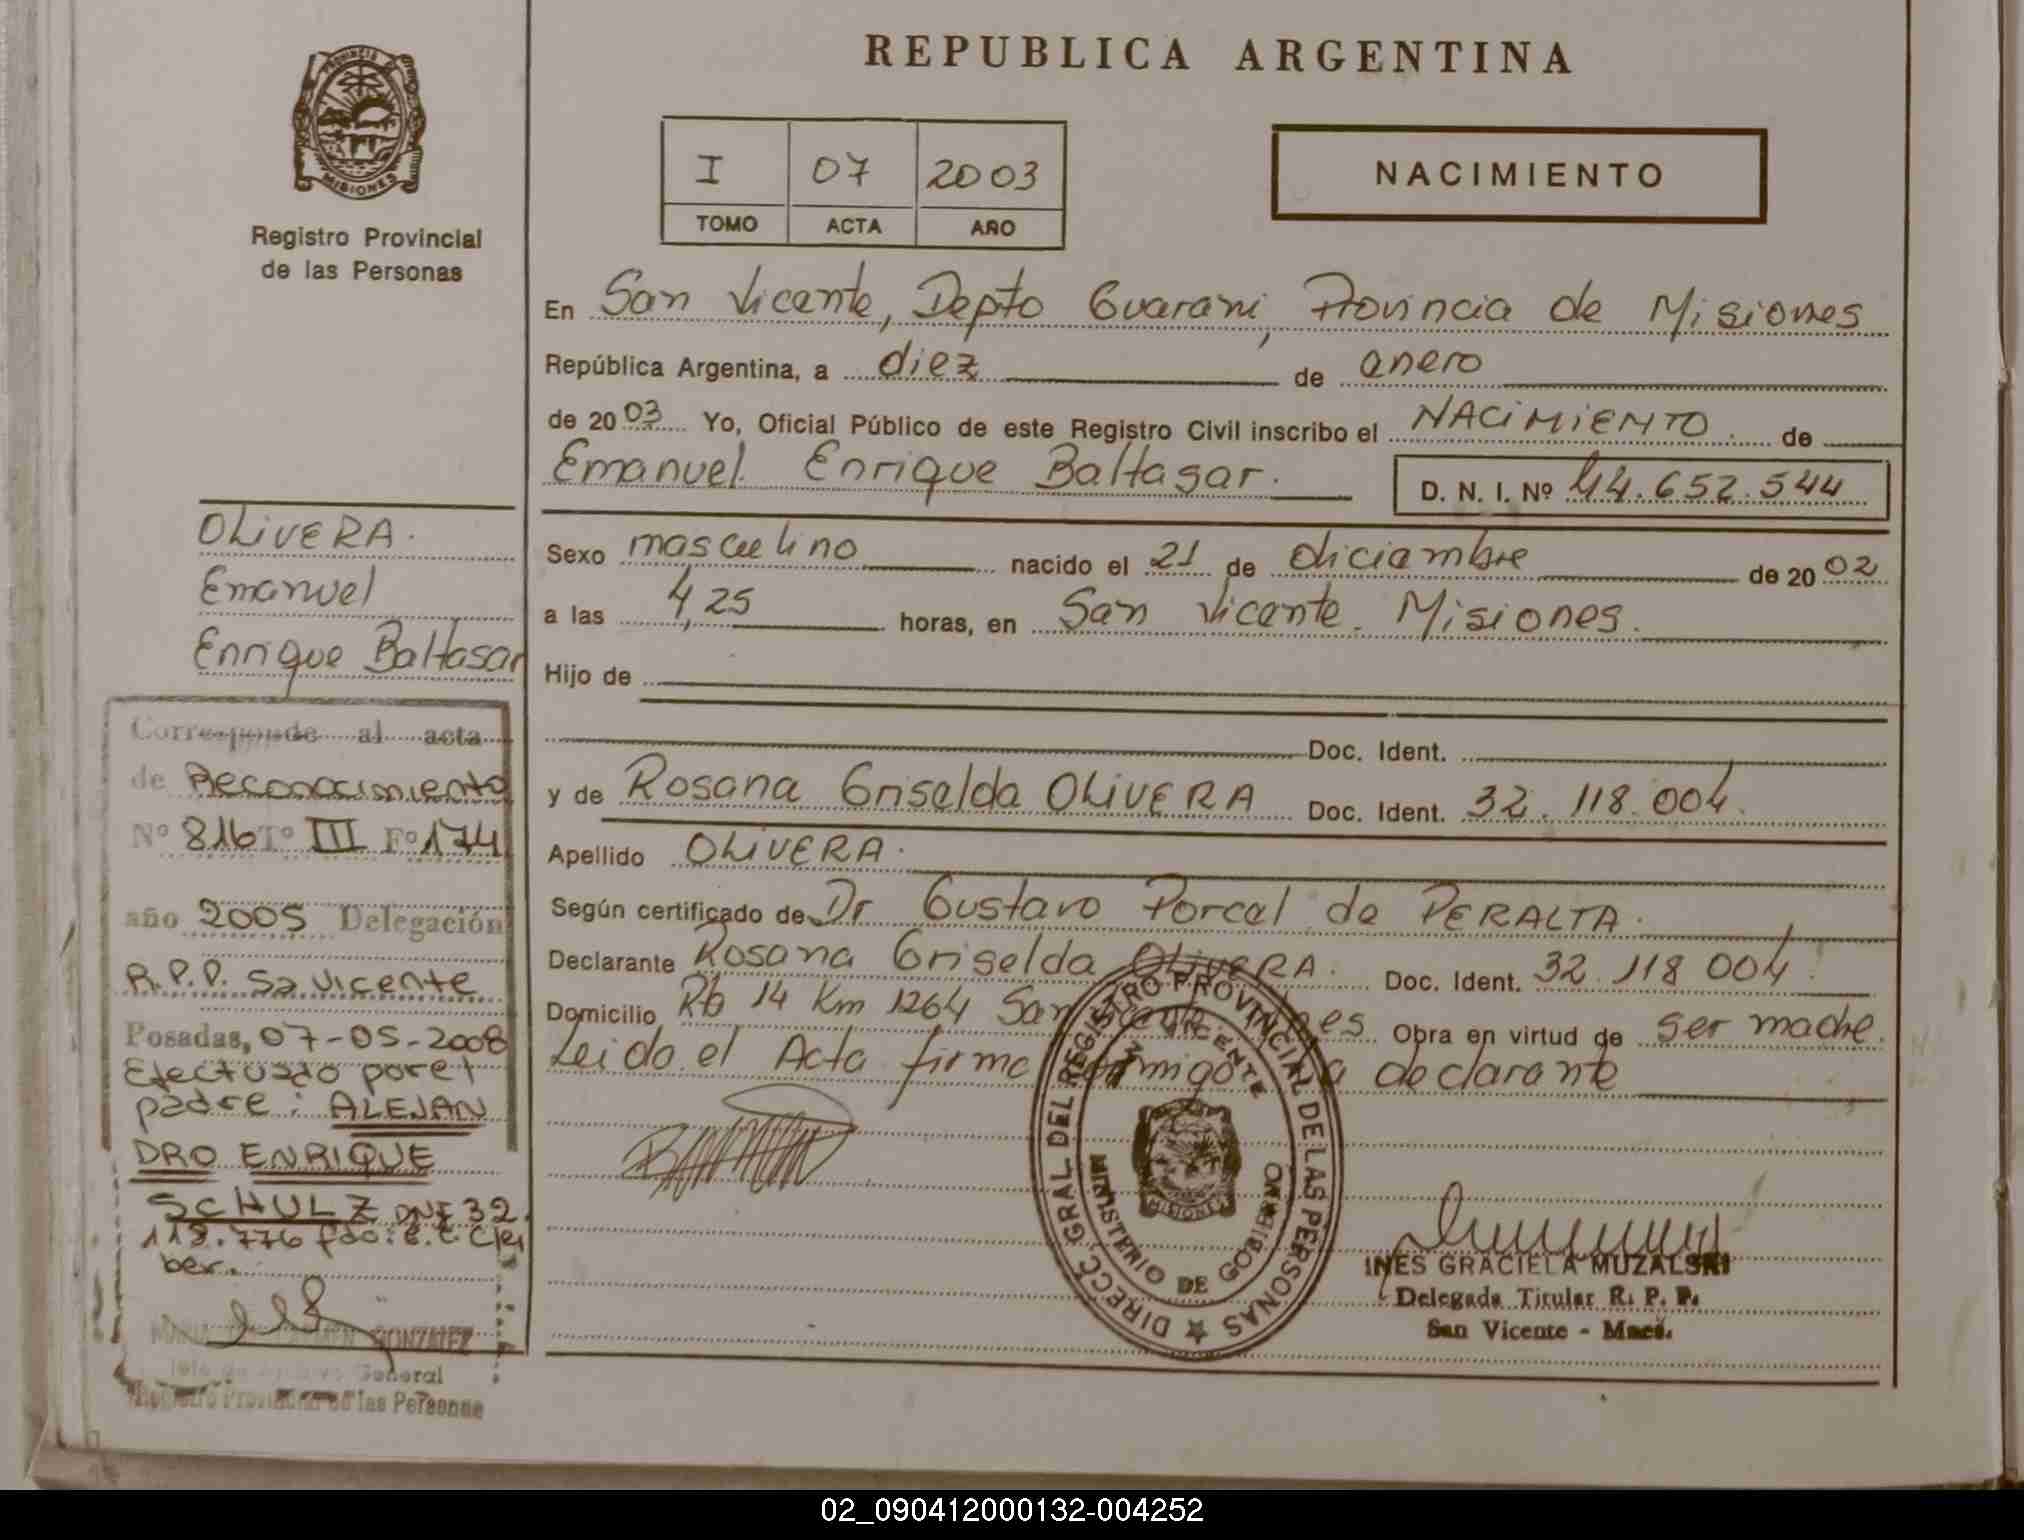 REPUBLICA ARGENTINA
PROVINCIA DE
MISIONES
Registro Provincial
de las Personas
I 07 2003
TOMO ACTA AÑO
NACIMIENTO
En San Vicente, Depto Guarani, Provincia de Misiones
República Argentina, a diez de enero
de 2003 Yo, Oficial Público de este Registro Civil inscribo el NACIMIENTO de
Emanuel Enrique Baltasar. D. N. I. Nº 44.652.544
Sexo masculino nacido el 21 de diciembre de 2002
a las 4,25 horas, en San Vicente. Misiones.
Hijo de
Doc. Ident.
y de Rosana Griselda OLIVERA Doc. Ident. 32.118.004.
Apellido OLIVERA.
Según certificado de Dr Gustavo Porcel de PERALTA.
Declarante Rosana Griselda OLIVERA. Doc. Ident. 32 118 004.
Domicilio Rta 14 Km 1264 San Vicente Mnes Obra en virtud de ser madre.
Leido el Acta firma conmigo la declarante
OLIVERA.
Emanuel
Enrique Baltasar
Corresponde al acta
de Reconocimiento
Nº 816 Tº III Fº 174
año 2005 Delegación
R.P.P. Sa Vicente
Posadas, 07-05-2008
Efectuado por el
padre: ALEJAN
DRO ENRIQUE
SCHULZ DNI 32.
118.776 fdo:
GONZALEZ
Jefe de Archivo General
Registro Provincial de las Personas
DIRECC. GRAL DEL REGISTRO PROVINCIAL DE LAS PERSONAS
SAN VICENTE
MINISTERIO DE GOBIERNO
MISIONES
INES GRACIELA MUZALSKI
Delegada Titular R. P. P.
San Vicente - Mnes.
02_090412000132-004252